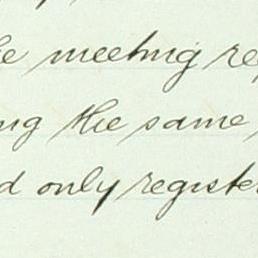 he meeting re
ng the same
d only registe